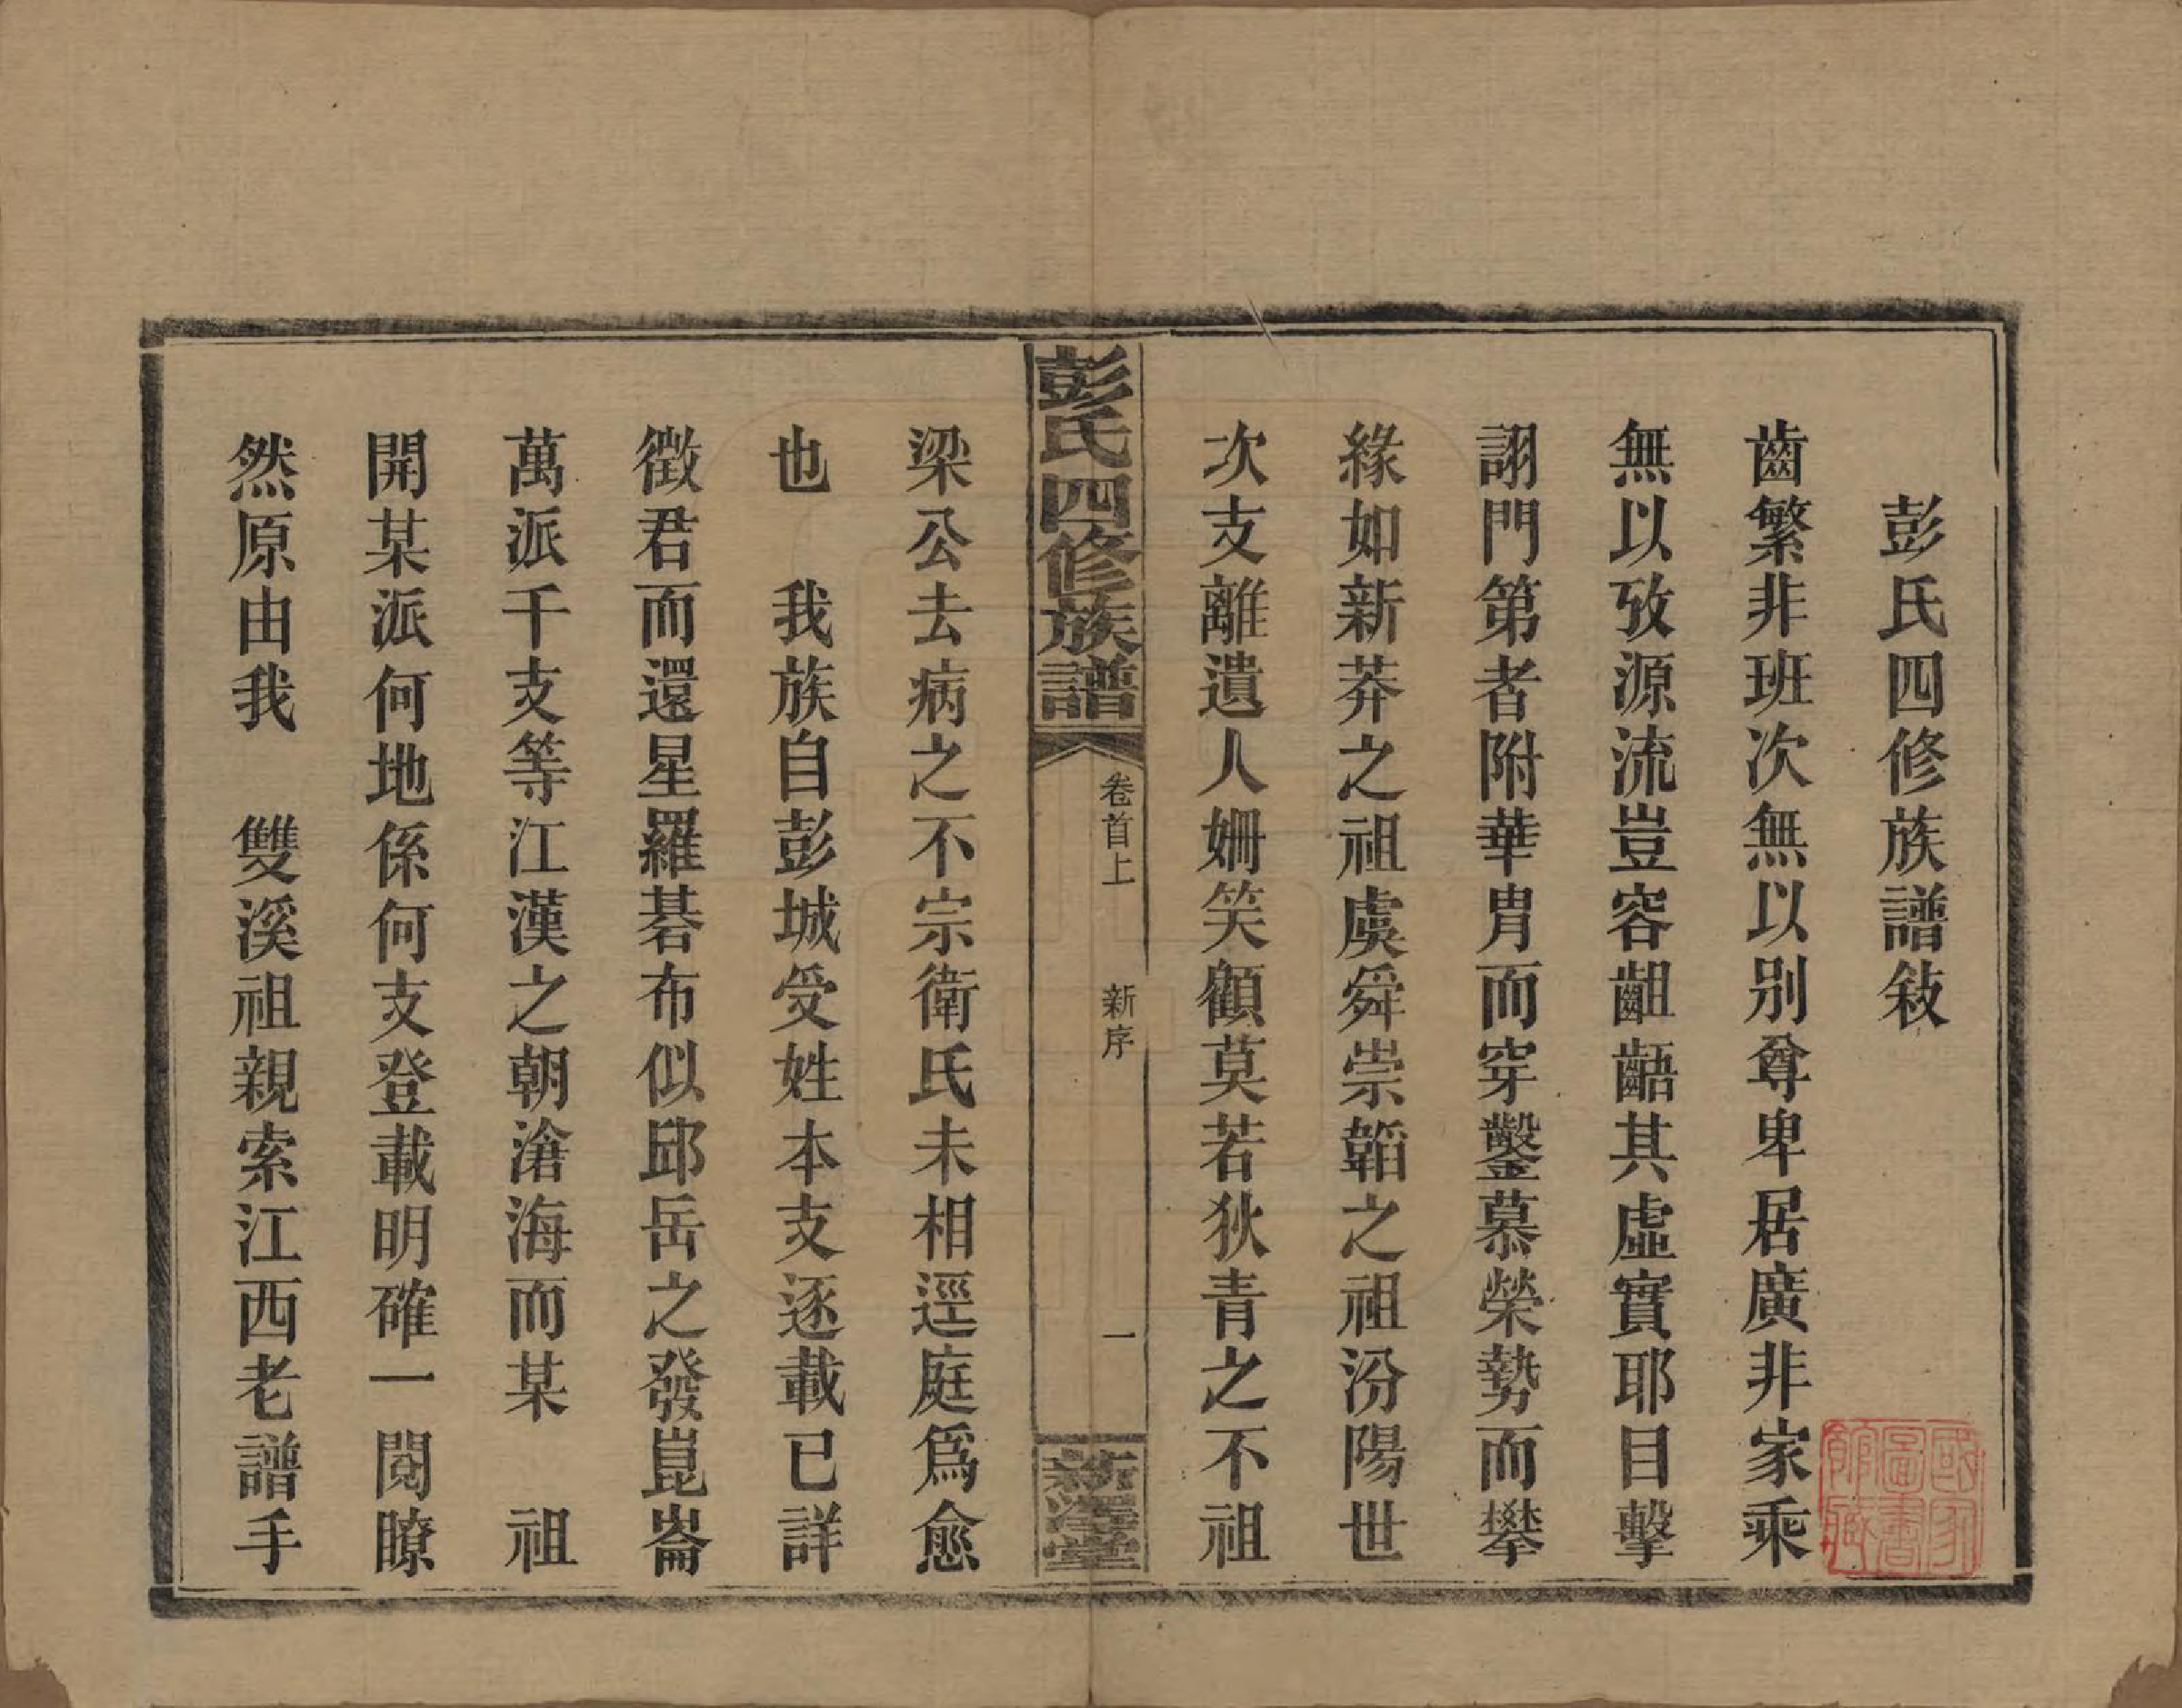 彭氏四修族譜敍
齒繁非班次無以别尊卑居廣非家乘
無以攷源流豈容齟齬其虛實耶目擊
詡門第者附華胄而穿鑿慕榮勢而攀
緣如新莽之祖虞舜崇韜之祖汾陽世
次支離遺人姍笑顧莫若狄青之不祖
彭氏四修族譜
卷首上
新序
一
梁公去病之不宗衛氏未相逕庭爲愈
也　我族自彭城受姓本支逐載已詳
徵君而還星羅碁布似邱岳之發崑崙
萬派千支等江漢之朝滄海而某　祖
開某派何地係何支登載明確一閱瞭
然原由我　雙溪祖親索江西老譜手
國家圖書館藏